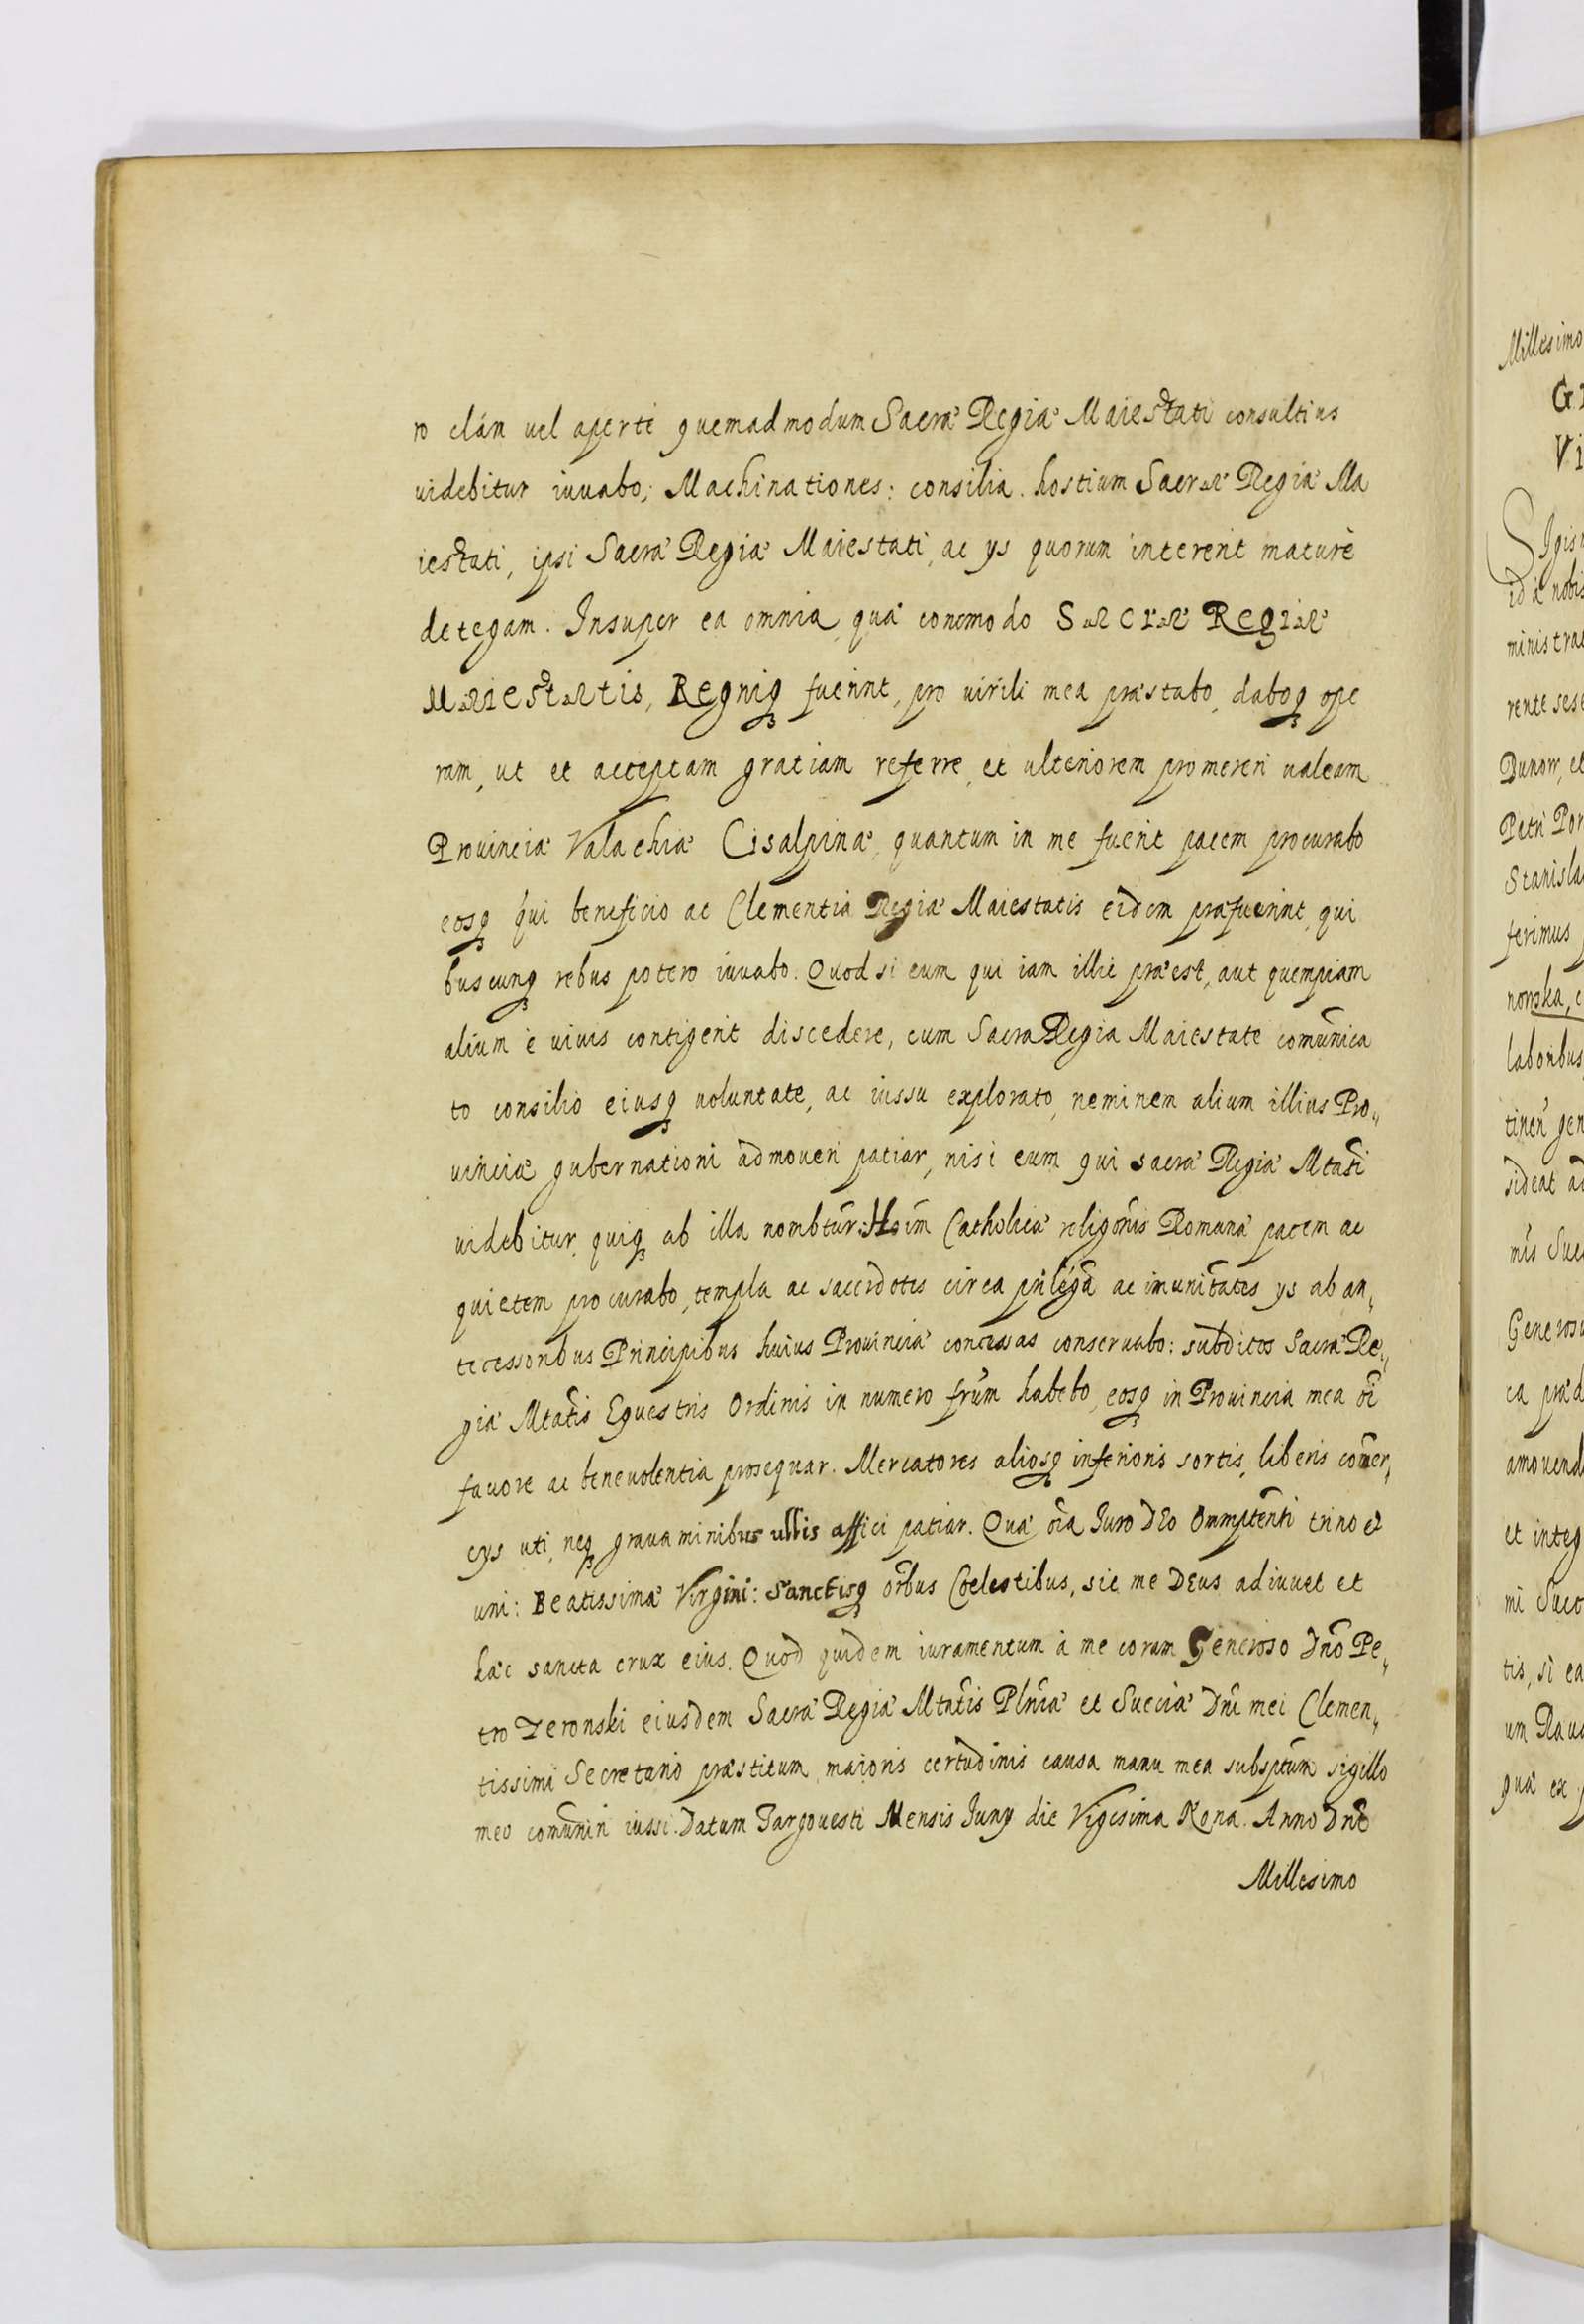 ro clám uel aperte quemadmodum Sacræ Regiæ Maiestati consultius
uidebitur iuuabo, Machinationes: consilia. hostium Sacræ Regiæ Ma
iestati, ipsi Sacræ Regiæ Maiestati, ac ys quorum intererit maturè
detegam. Insuper ea omnia, quæ conmodo Sacræ Regiæ
Maiestatis, Regniq fuerint, pro uirili mea præstabo, daboq ope
ram, ut et acceptam gratiam referre, et ulteriorem promereri ualeam
Prouinciæ Valachiæ Cisalpinæ, quantum in me fuerit pacem procurabo
eosq qui beneficio ac Clementia Regiæ Maiestatis eidem præfuerint, qui
buscunq rebus potero iuuabo. Quod si eum qui iam illic præest, aut quempiam
alium è uiuis contigerit discedere, cum Sacra Regia Maiestate comũnica
to consilio eiusq uoluntate, ac iussu explorato, neminem alium illius Pro„
uinciæ gubernationi admoueri patiar, nisi eum qui sacræ Regiæ Mtati
uidebitur, quiq ab illa nombtur: Hoim Catholicæ religonis Romanæ pacem ac
quietem procurabo, templa ac sacerdotes circa prilega ac imunitates ys ab an„
tecessoribus Principibus huius Prouinciæ concessas conseruabo: subditos Sacræ Re„
giæ Mtatis Equestris Ordinis in numero frũm habebo, eosq in Prouincia mea oi
fauore ac beneuolentia prosequar. Mercatores aliosq inferioris sortis, liberis comer„
cys uti, neq grauaminibus ullis affici patiar. Quæ oia Juro DEo Ommptenti trino et
uni: Beatissimæ Virgini: Sanctisq orbus Coelestibus, sic me DEus adiuuet et
hæc sancta crux eius. Quod quidem iuramentum à me coram Generoso Dno Pe„
tro Zeronski eiusdem Sacræ Regiæ Mtatis Plniæ et Sueciæ Dni mei Clemen„
tissimi Secretario præstitum, maioris certudinis causa manu mea subsptum sigillo
meo comuniri iussi. Datum Targouesti Mensis Juny die Vigesima Nona. Anno Dni
Millesimo
Millesimo
Dunow, et
Petri Por
Stanisla
ferimus
nowska, c
laboribus
sideat ad
Generosu
ca præd
amouend
et integ
mi Succ
tis, si ea
um Raua
quæ ex p